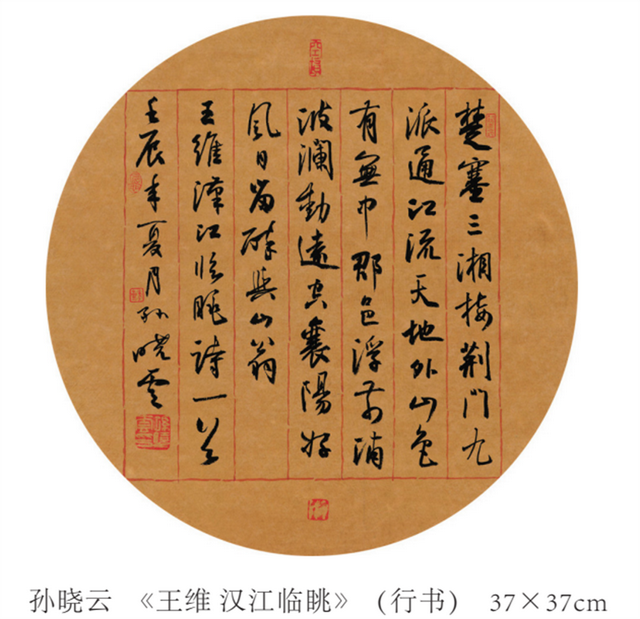 楚塞三湘接荆門九
派通江流天地外山色
有無中郡邑浮前浦
波瀾動遠空襄陽好
風日留醉與山翁
王維漢江临眺詩一首
壬辰年夏月孙晓雲
孙晓云 《王维 汉江临眺》 (行书) 37×37cm